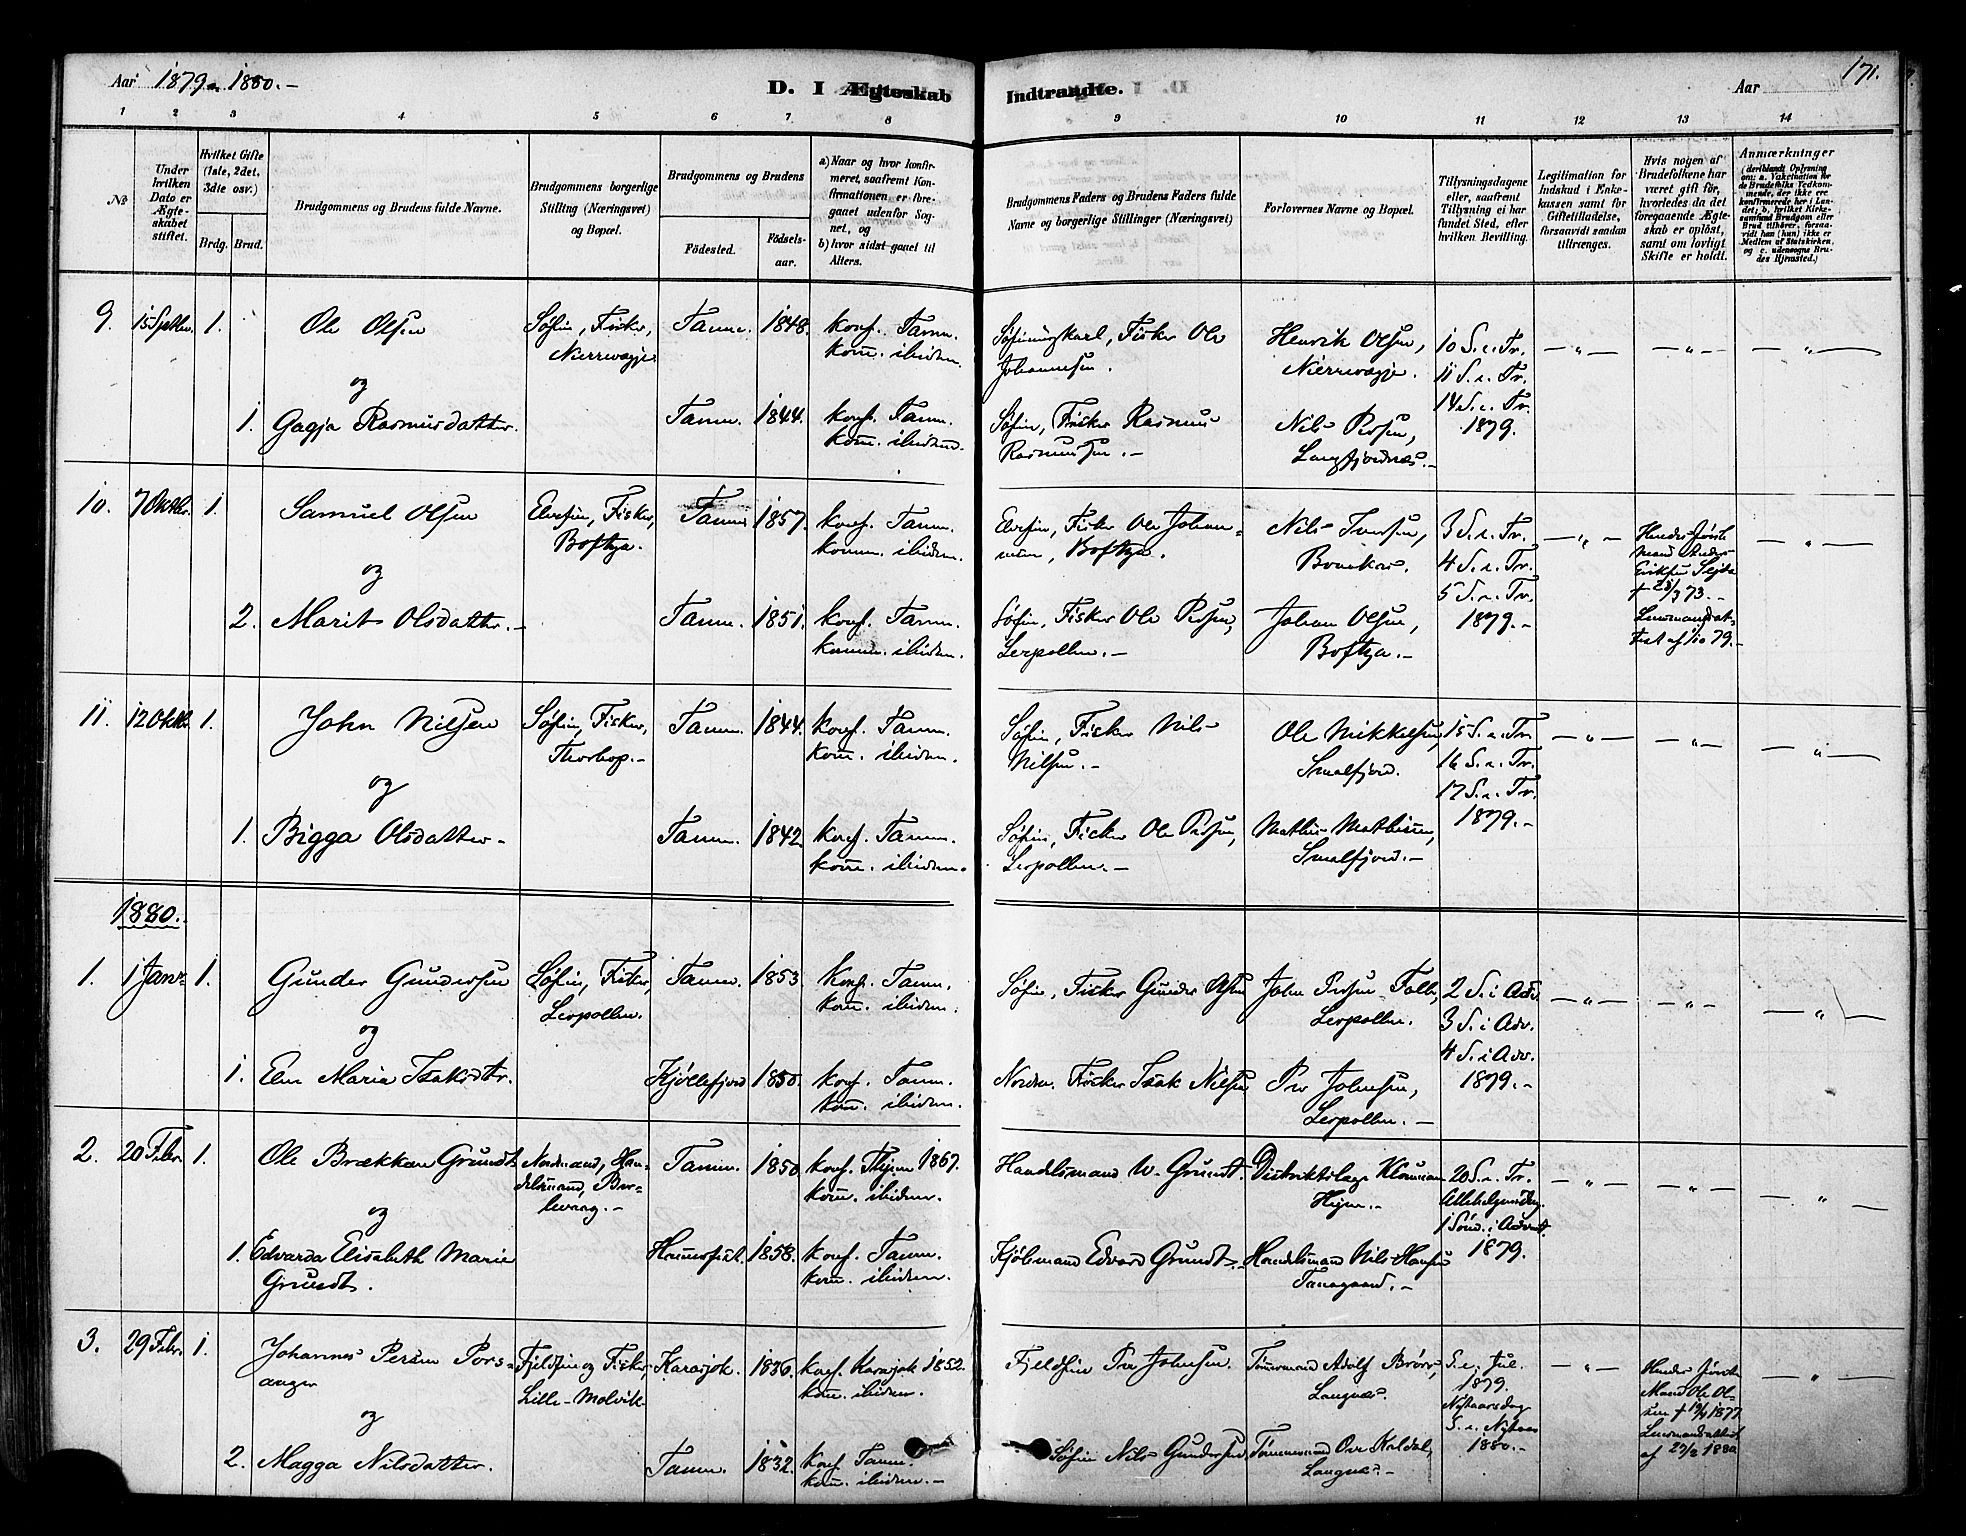 Aar 1879 1880.-
D. I Ægteskab
Indtraadte.
Aar
171.
1 2 3 4 5 6 7 8 9 10 11 12 13 14
No
Under hvilken Dato er Ægteskabet stiftet.
Hvilket Gifte (1ste, 2det, 3die osv.)
Brdg. Brud.
Brudgommens og Brudens fulde Navne.
Brudgommens borgerlige Stilling (Næringsvei) og Bopæl.
Brudgommens og Brudens
Fødested. Fødselsaar.
a) Naar og hvor konfirmeret, saafremt Konfirmationen er foregaaet udenfor Sognet, og
b) hvor sidst gaaet til Alters.
Brudgommens Faders og Brudens Faders fulde Navne og borgerlige Stillinger (Næringsvei)
Forlovernes Navne og Bopæl.
Tillysningsdagene eller, saafremt Tillysning ei har fundet Sted, efter hvilken Bevilling.
Legitimation for Indskud i Enkekassen samt for Giftetilladelse, forsaavidt saadan tiltrænges.
Hvis nogen af Brudefolkene har været gift før, hvorledes da det foregaaende Ægteskab er opløst, samt om lovligt Skifte er holdt.
Anmærkninger
9. 15 Septbr. 1. Ole Olsen Søfin, Fisker, Tanen. 1848. konf. Tanen. Fisker Ole Henrik Olsen, 10 S. e. Tr.
Nierrevagje kom. ibidem. Johannesen. Nierrevagje. 11 S. e. Tr.
og 14 S. e. Tr.
1. Gagja Rasmusdatter. Tanen. 1844. konf. Tanen. Søfin, Fisker Rasmus Nils Persen, 1879.
kom. ibidem. Rasmussen.- Langfjordnæs.-
10. 7 Oktbr. 1. Samuel Olsen Elvefin, Fisker, Tanen 1857. konf. Tanen. Elvefin, Fisker Ole Johan- Nils Iversen, 3 S. e. Tr. Hendes første
Boftsa. komm. ibidem. Boftsa. 4 S. e. Tr. Mand Anders
og 5 S. e. Tr. Eriksen
2. Marit Olsdatter.- Tanen. 1851. konf. Tanen. Søfin, Fisker Ole Persen, Johan Olsen, 1879.-
komm. ibidem. Lerpollen.- Boftsa.-
11. 12 Oktb. 1. John Nilsen Søfin, Fisker, Tanen. 1844. konf. Tanen. Søfin, Fisker Nils Ole Mikkelsen, 15 S. e. Tr.
Thorhop.- kom. ibidem. Nilsen.- Smalfjord. 16 S. e. Tr.
og 17 S. e. Tr.
1. Bigga Olsdatter- Tanen. 1842. konf. Tanen. Søfin, Fisker Ole Persen, Mathis Mathisen, 1879.-
kom. ibidem. Lerpollen.- Smalfjord.-
1880.
1. 1 Janr. 1. Gunder Gundersen Søfin, Fisker, Tanen. 1853 konf. Tanen. Søfin, Fisker Gunder John Persen 2 S. i Adv.
Lerpollen. kom. ibidem. Lerpollen. 3 S. i Adv.
og 4 S. i Adv.
1. Elen Maria Isaksdtr. Kjøllefjord 1850. konf. Tanen. Fisker Isak Nilsen Per Johnsen, 1879.-
kom. ibidem. Lerpollen.-
2. 20 Febr. 1. Ole Brækkan Grundt Nordmand, Han- Tanen. 1850. konf. 1867. Handelsmand W. Grundt. Distriktslæge 20 S. e. Tr.
delsmand, Ber- kom. ibidem. Allehelgensdag
levaag.- 1 Sønd. i Advent.
og 1879.
1. Edvarda Elisabeth Marie Hammerfest. 1858. konf. Tanen. Kjøbmand Edvard Grundt.- Handelsmand Nils Hansen
Grundt. kom. ibidem. Tanagaard.-
3. 29 Febr. 1. Johannes Persen Pors- Fjeldfin og Fisker, Karasjok. 1836. konf. Karasjok 1852. Fjeldfin Per Johnsen. Tømmermand Adolf S. e. Jul. Hendes første
anger Lille-Molvik. kom. ibidem. Langnæs. 1879. Mand Ole Ol-
og Nytaarsdag sen † 1877
S. e. Nytaar
2. Magga Nilsdatter. Tanen. 1832. konf. Tanen. Søfin Nils Gundersen Tømmermand Ove 1880.-
kom. ibidem.- Langnæs.-